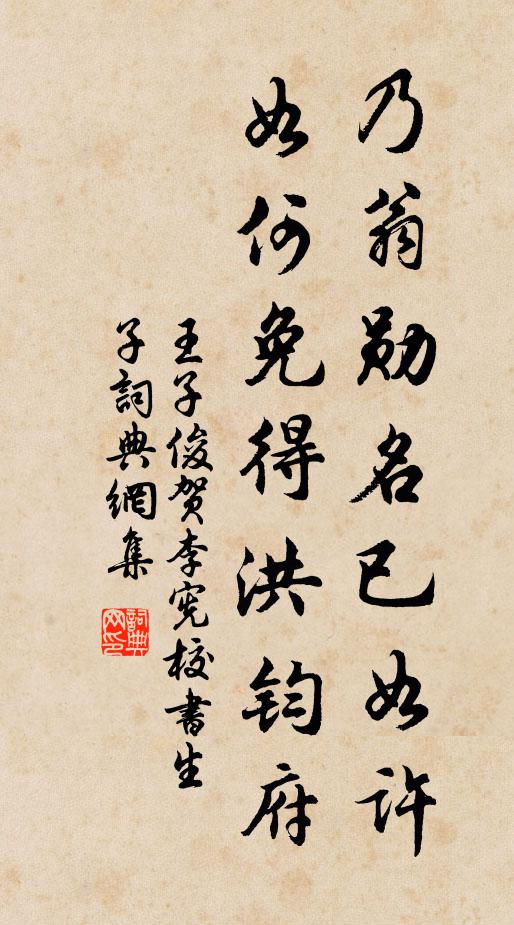 乃翁勋名已如许
如何免得洪钧府
王子俊贺李宪校书生
子詞典網集
詞典网印